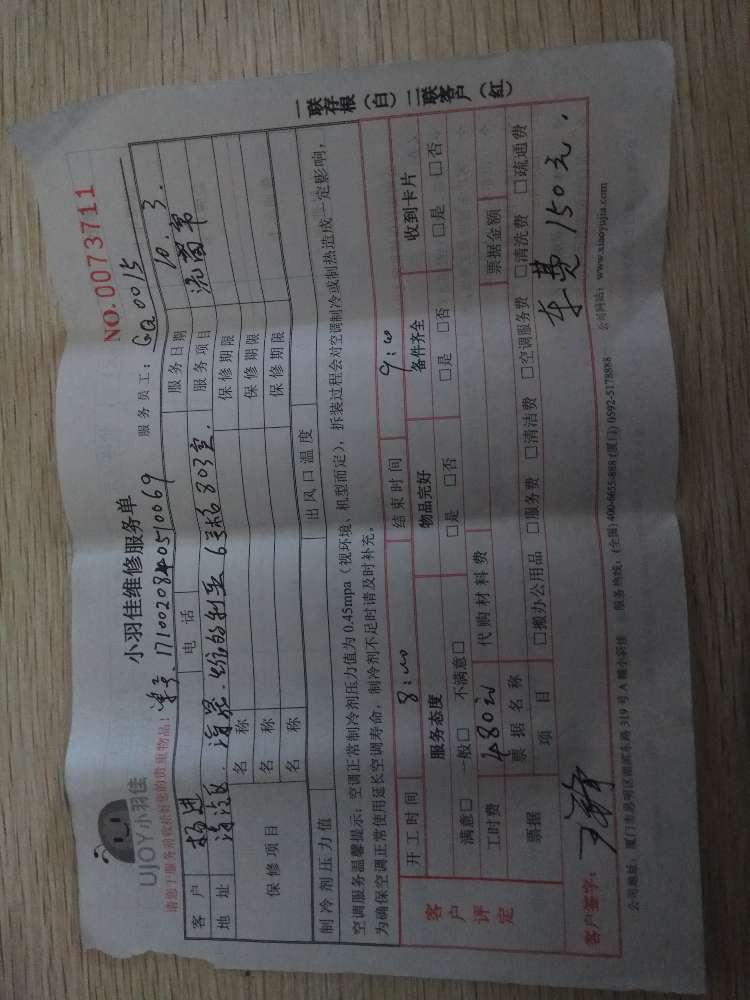 UJOY小羽佳
小羽佳维修服务单
NO.0073711
请您于服务前收拾好您的贵重物品!
单号、1710020840510069
服务员工: GQ0015
客户 杨进 电话 服务日期 10.3.
地址 海沧区. 6号楼803室. 服务项目
保修项目 名称 保修期限
名称 保修期限
名称 保修期限
制冷剂压力值 出风口温度
空调服务温馨提示: 空调正常制冷剂压力值为0.45mpa(视环境、机型而定), 拆装过程会对空调制冷或制热造成一定影响,
为确保空调正常使用延长空调寿命, 制冷剂不足时请及时补充。
开工时间 8:00 结束时间 9:00
客户评定
服务态度 物品完好 备件齐全 收到卡片
满意□ 一般□ 不满意□ □是 □否 □是 □否 □是 □否
工时费 480元 代购材料费
票据 票据名称 票据金额
项目 □搬办公用品 □服务费 □清洁费 □空调服务费 □清洗费 □疏通费
客户签字:
车费150元.
公司地址: 厦门市思明区湖滨东路319号A幢小羽佳 服务热线: (全国)400-6655-888 (厦门) 0592-5178888 公司网站: www.xiaoyujia.com
一联存根(白) 二联客户(红)